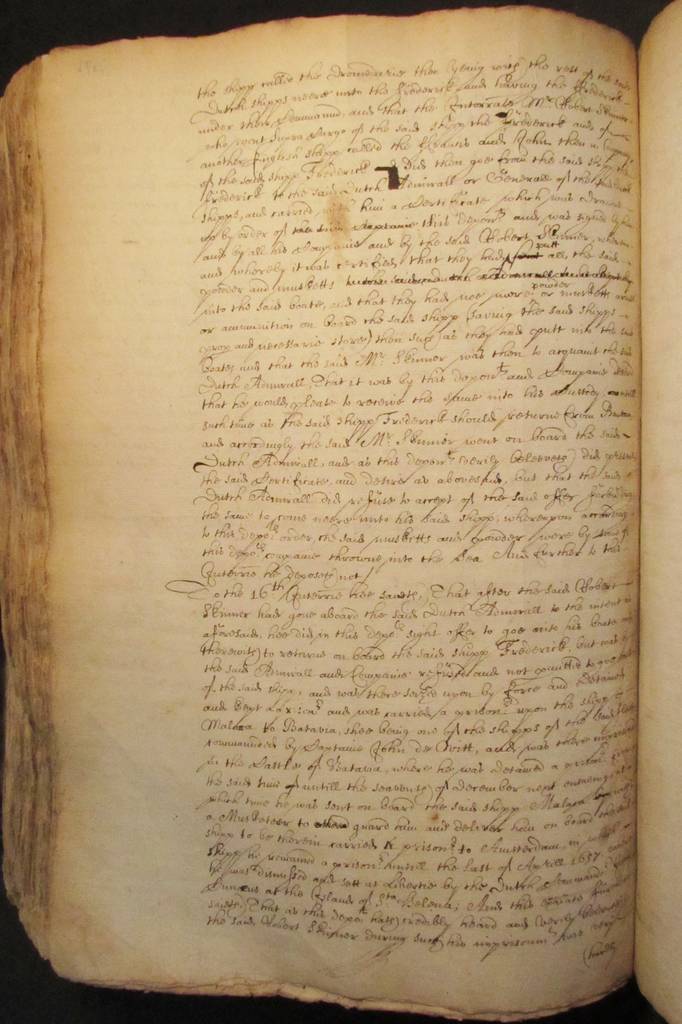 the shipp called the Dromedarie then lyeing with the rest of the said
Dutch shipps neere unto the Frederick and having the Frederick
under their Command, and that the Interrate Mr Robert Skinner
who went Supra Cargo of the said shipp the Frederick and of
another English shipp called the Francis and John then in Company
of the said shipp Frederick did then goe from the said shipp the
Frederick to the said Dutch Admirall or Generall of the said Dutch
shipps, and carried with him a Certificate which was drawne
up by order of this depont and was signed by him
and by all his Companie and by the said Robert Skinner, wherein
and whereby it was certified, that they had putt all the said
powder and musketts
into the said boate, and that they had noe more powder or musketts
or ammunition on board the said shipp (saving the said shipps
provision and necessarie stores) then such as they had putt into the said
boate; and that the said Mr Skinner was then to acquant the said
Dutch Admirall, That it was by this deponts and Companies desire
that he would please to receive the same into his Custody untill
such time as the said shipp Frederick should returne from
and accordingly the said Mr Skinner went on board the said
Dutch Admirall, and as this deponent verily beleeveth) did present
the said Certificate, and desire as abovesaid, but that the said
Dutch Admirall did refuse to accept of the said offer forbidding
the same to come neere unto his said shipp, whereupon according
to this depots order, the said musketts and powder were by some of
this depots companie throwne into the Sea. And further to this
Interrie he deposeth not/
To the 16th Interrie hee saueth, That after the said Robert
Skinner had gone aboard the said Dutch Admirall to the intent
aforesaid, hee did in this depots sight offer to goe into his boate and
therewith to returne on board the said shipp Frederick, but was by
the said Admirall and Companie refused and not permitted to goe out
of the said shipp, and was there seized upon by force and detained
and kept and was carried a prisonr upon the shipp
Malaca to Batavia, shee being one of the shipps of the said fleet
commanded by Captaine John de Witt, and was there imprisoned
in the Castle of Batavia, where he was detained a prisonr from
the said time of untill the seaventh of december next ensueing at
which time he was sent on board the said shipp Malaca with
a Musketeer to guard him and deliver him on board the said
shipp to be therein carried a prisonr to Amsterdam, in which
shipp he remained a prisonr untill the last of Aprill 1657 when
he was dismissed and sett at libertie by the Dutch Commander
at the Island of Sta Helena; And this
saueth, That as this depot hath credibly heard and verily beleeveth
the said Robert Skinner during such his imprisonmt was very
(hardly